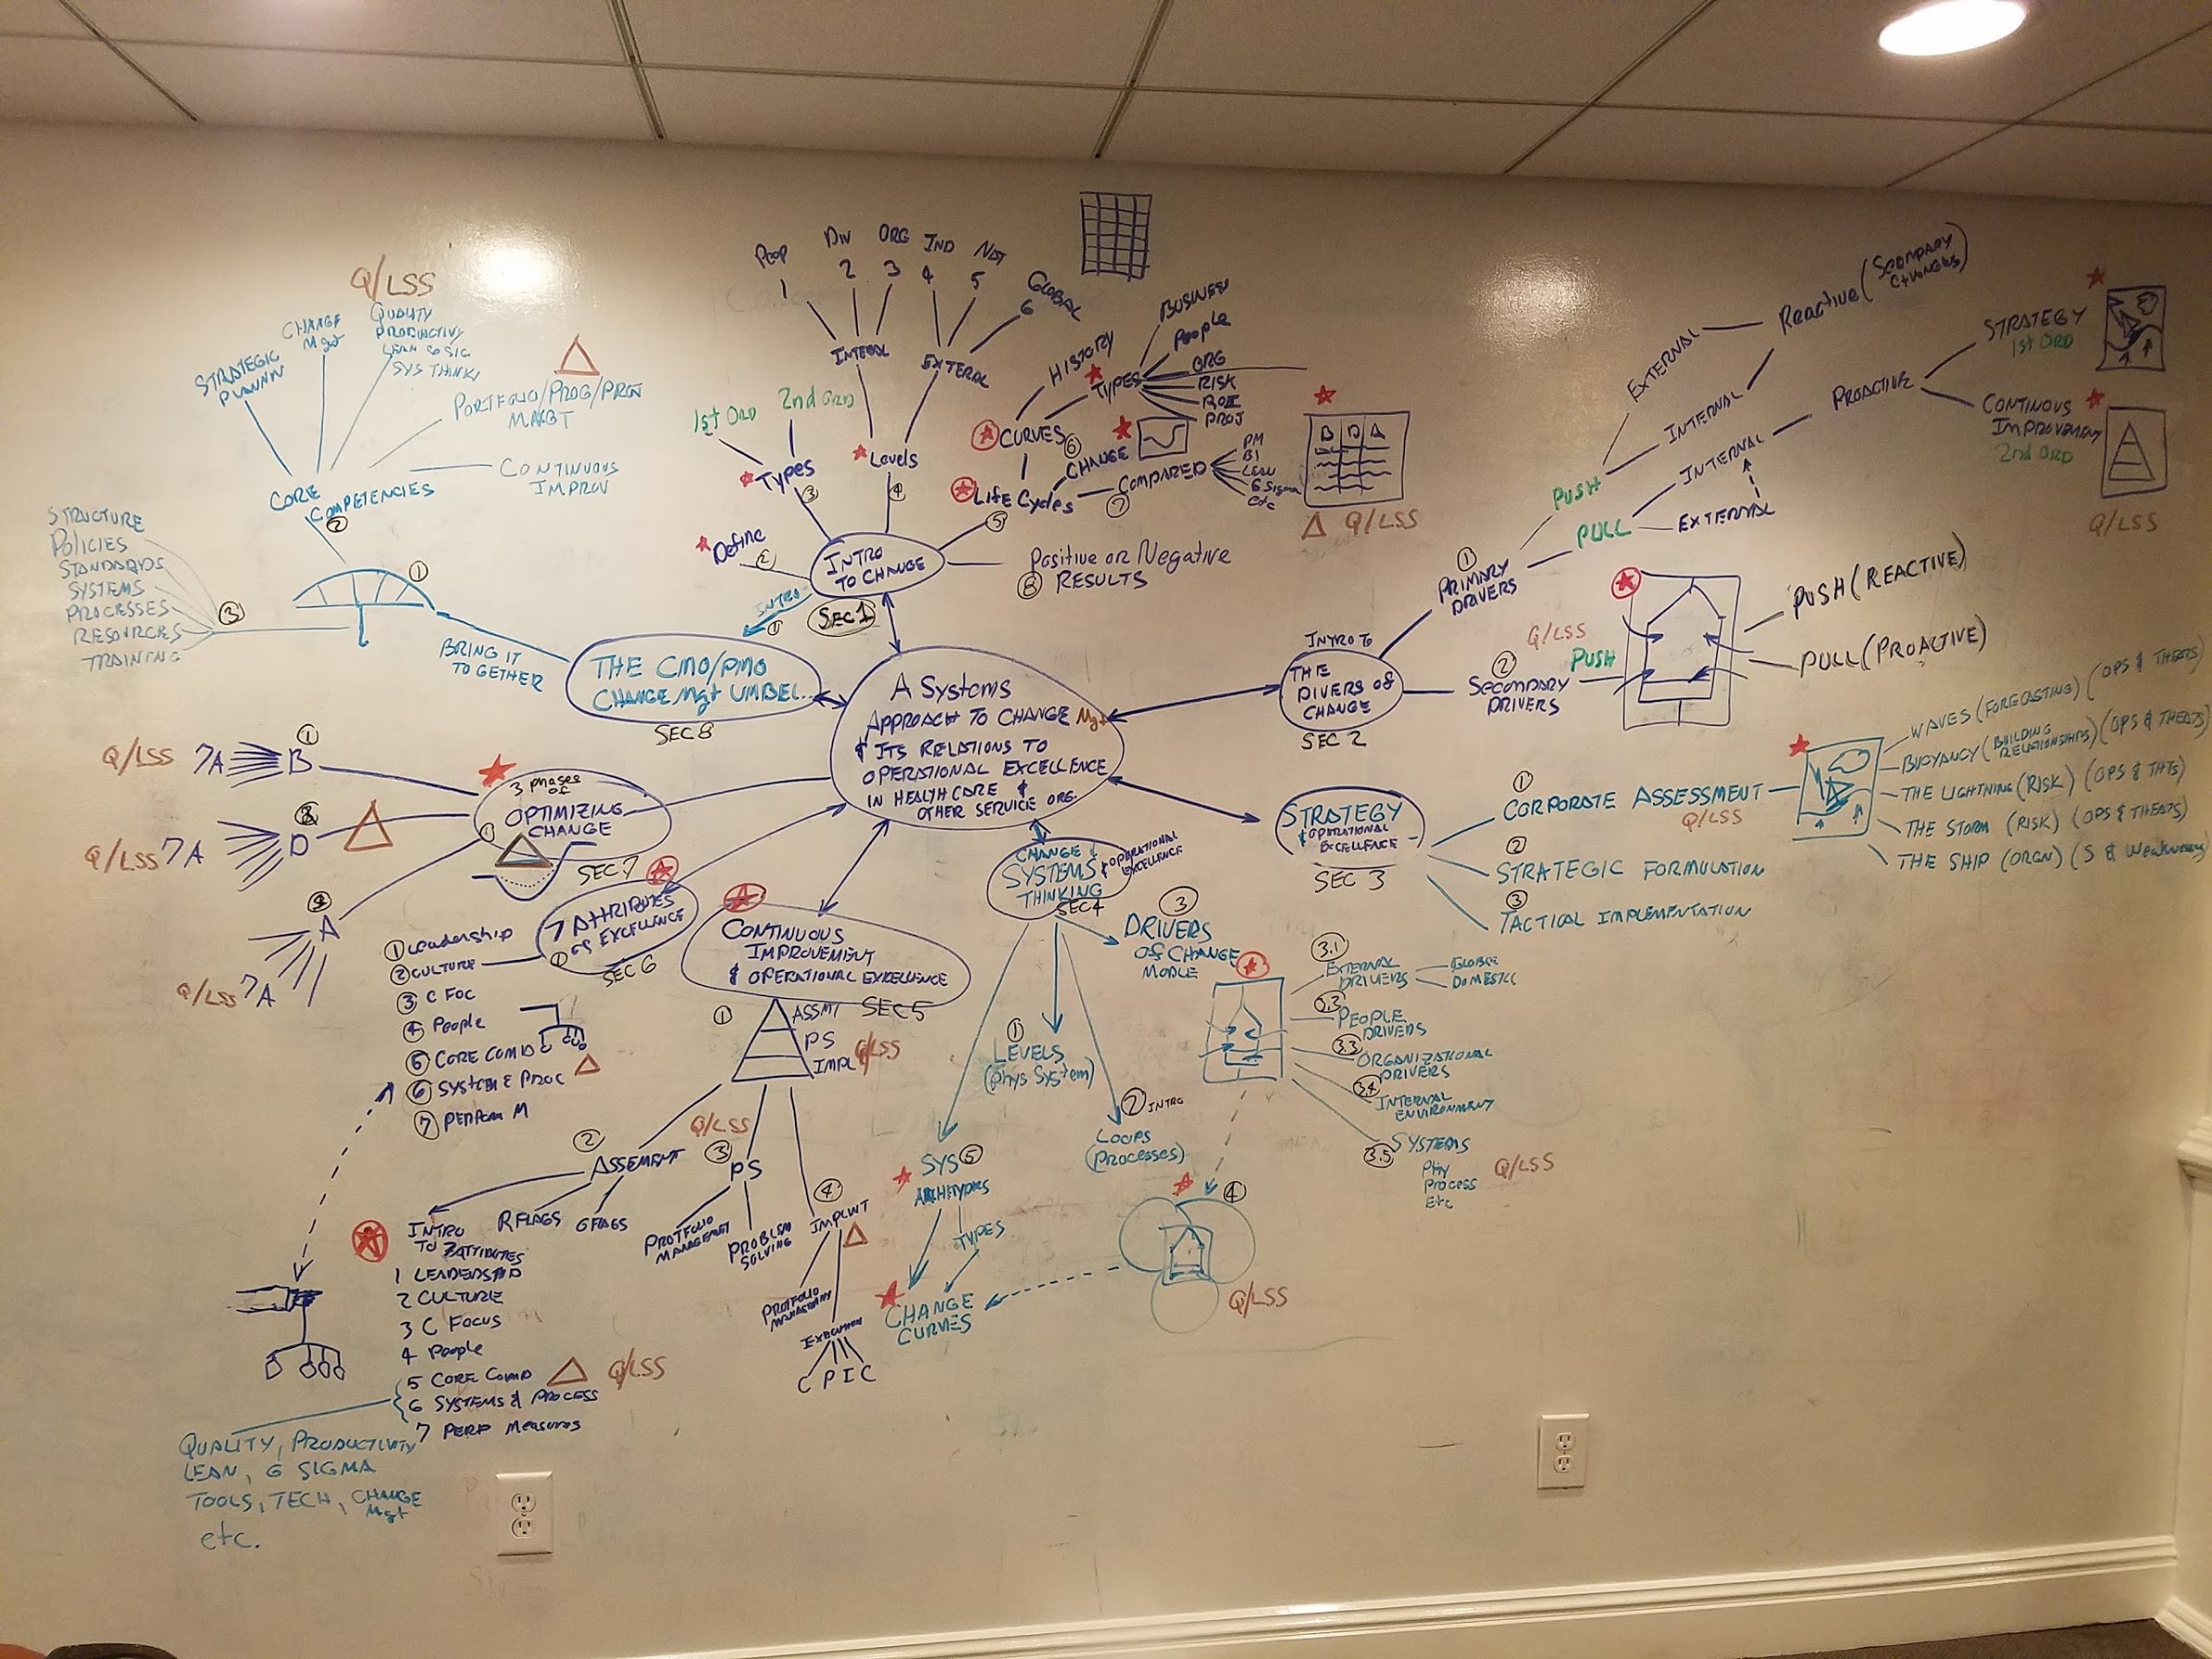 A Systems
APPROACH TO CHANGE Mgt
& ITS RELATIONS TO
OPERATIONAL EXCELLENCE
IN HEALTHCARE &
OTHER SERVICE ORG.
INTRO
TO CHANGE
SEC 1
② Define
③ Types
1st ORD
2nd ORD
④ Levels
INTEAL
PEOP
1
DIV
2
ORG
3
EXTERAL
IND
4
NAT
5
GLOBAL
6
⑤ Life Cycles
CURVES
HISTORY
TYPES
BUSINESS
People
ORG
RISK
PROJ
⑥
CHANGE
COMPARED
⑦
PM
BI
LEAN
6 Sigma
etc
B D A
Q/LSS
Positive or Negative
⑧ RESULTS
INTRO
①
INTRO TO
THE
DIVERS OF
CHANGE
SEC 2
①
PRIMARY
DRIVERS
PUSH
EXTERNAL
INTERNAL
Reactive (
PULL
INTERNAL
EXTERNAL
PROACTIVE
STRATEGY
1st ORD
CONTINOUS
IMPROVEMENT
2nd ORD
Q/LSS
②
SECONDARY
DRIVERS
Q/LSS
PUSH
PUSH (REACTIVE)
PULL (PROACTIVE)
STRATEGY
& OPERATIONAL
EXCELLENCE
SEC 3
①
CORPORATE ASSESSMENT
Q/LSS
WAVES (FORECASTING) (OPS & THEATS)
BUOYANCY (BUILDING
RELATIONSHIPS) (OPS & THEATS)
THE LIGHTNING (RISK) (OPS & THTS)
THE STORM (RISK) (OPS & THEATS)
THE SHIP (ORGN) (S & Weakness)
②
STRATEGIC FORMULATION
③
TACTICAL IMPLEMENTATION
CHANGE &
SYSTEMS
THINKING
& OPERATIONAL
EXCELLENCE
SEC 4
①
LEVELS
(Phys System)
② INTRO
LOOPS
(PROCESSES)
③
DRIVERS
OF CHANGE
MODLE
3.1
EXTERNAL
DRIVERS
DOMESTIC
PEOPLE
DRIVERS
3.3
ORGANIZATIONAL
DRIVERS
3.4
INTERNAL
ENVIRONMENT
3.5
SYSTEMS
Phy
Process
Etc
Q/LSS
④
Q/LSS
SYS ⑤
TYPES
CHANGE
CURVES
CONTINUOUS
IMPROVEMENT
& OPERATIONAL EXCELLENCE
SEC 5
①
ASSMT
PS
IMPL
Q/LSS
②
ASSEMENT
INTRO
TO 7 ATTIBUTES
1 LEADERSHIP
2 CULTURE
3 C FOCUS
4 People
5 CORE COMP
6 SYSTEMS & PROCESS
7 PERF Measures
Q/LSS
QUALITY, PRODUCTIVITY
LEAN, 6 SIGMA
TOOLS, TECH, CHANGE
Mgt
etc.
R FLAGS
G FLAGS
Q/LSS
③
PS
PROTFOLIO
MANAGEMENT
PROBLEM
SOLVING
④
IMPLMT
PROTFOLIO
EXECUTION
C P I C
7 ATTRIBUTES
OF EXCELLENCE
SEC 6
① Leadership
② CULTURE
③ C FOC
④ People
⑤ CORE COMP
⑥ SYSTEM & PROC
⑦ PERFORM M
3 phases
OF
OPTIMIZING
CHANGE
SEC 7
①
B
7A
Q/LSS
D
7A
Q/LSS
A
7A
Q/LSS
THE CMO/PMO
CHANGE Mgt UMBEL...
SEC 8
BRING IT
TO GETHER
①
②
CORE
COMPETENCIES
STRATEGIC
PLANNIN
CHANGE
Mgt
Q/LSS
QUALITY
PRODUCTIVITY
LEAN 6 SIG
SYS THINKI
PORTFOLIO/PROG/PROJ
MANGT
CONTINUOUS
IMPROV
③
STRUCTURE
POLICIES
STANDARDS
SYSTEMS
PROCESSES
RESOURCES
TRAINING